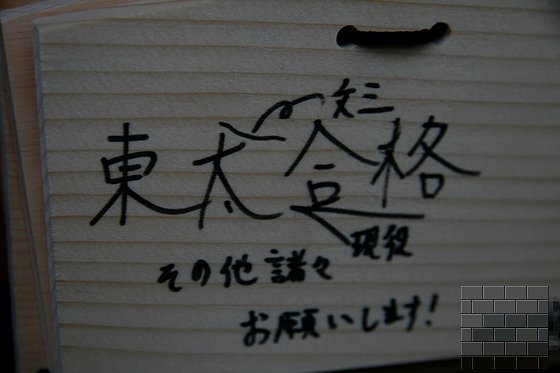 文三
東太合格
現役
その他諸々
お願いします!